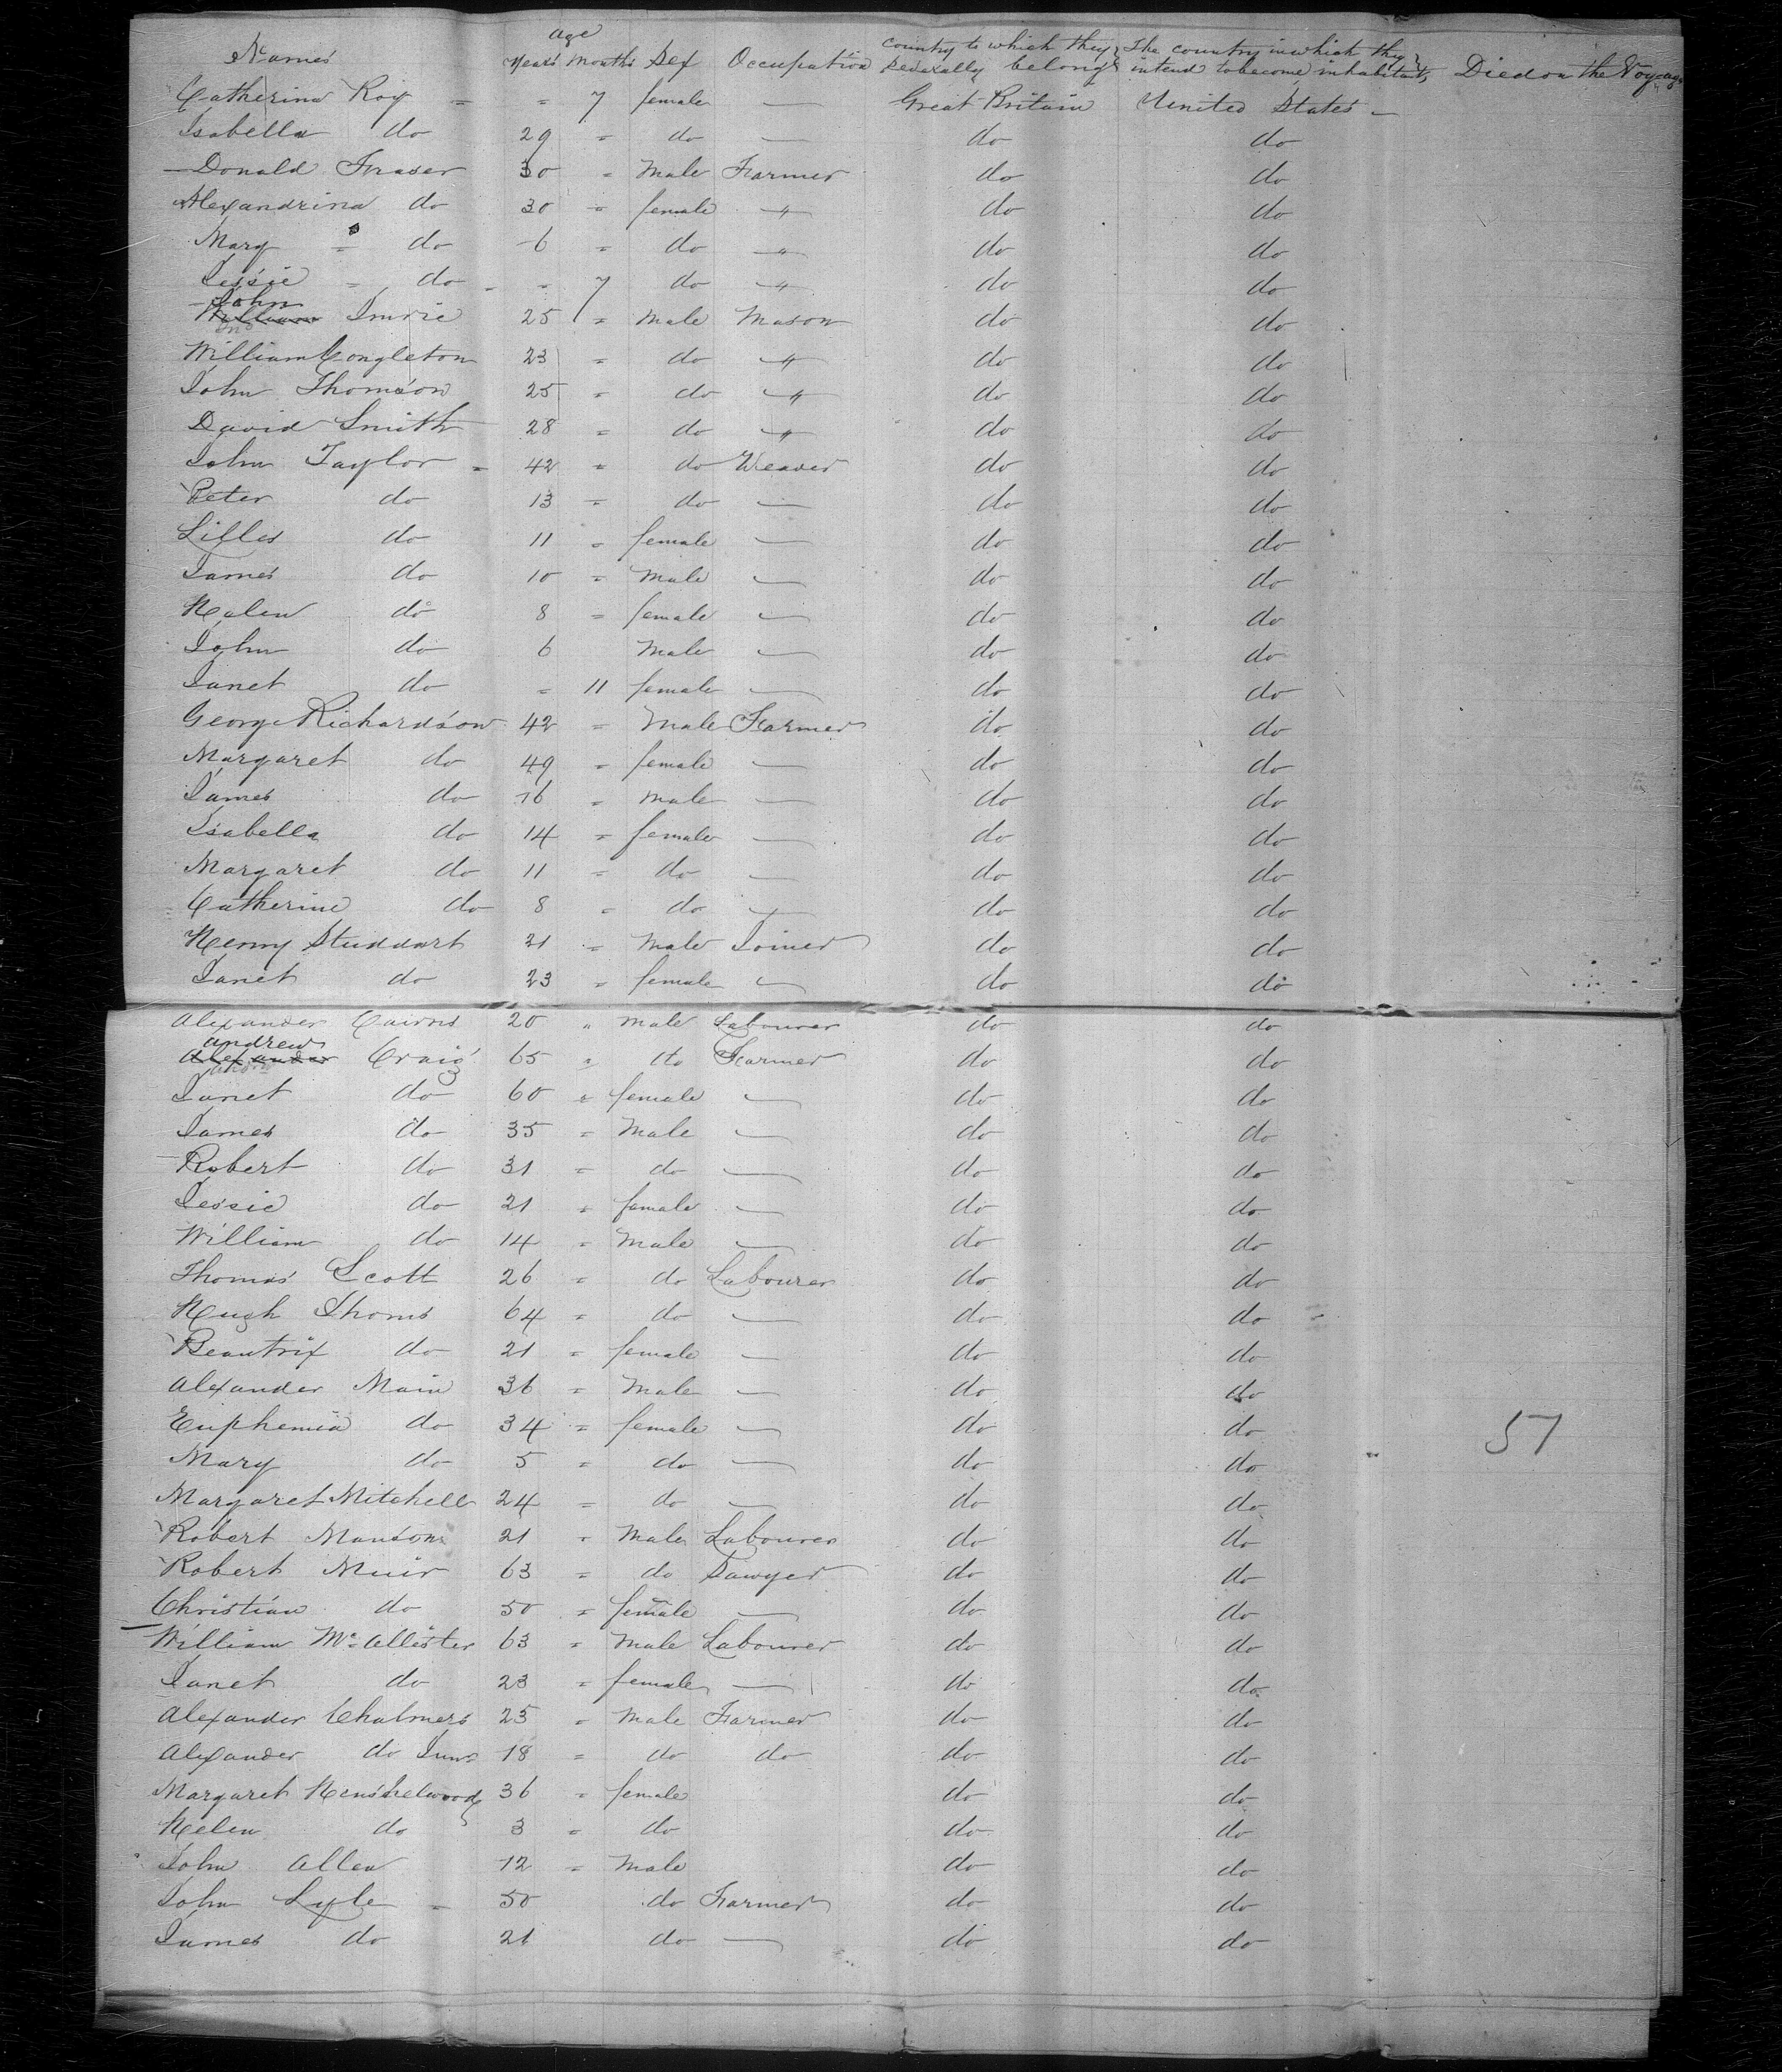 age
Names Years Months Sex Occupation Country to which they severally belong The country in which they intend to become inhabitants Died on the Voyage
Catherine Roy = = 7 female — Great Britain United States —
Isabella do 29 = do — do do
Donald Fraser 30 = Male Farmer do do
Alexandrina do 30 = female " do do
Mary = do 6 = do " do do
Jessie = do - = 7 do " do do
John
William Imrie 25 = Male Mason do do
William Congleton 23 = do " do do
John Thomson 25 = do " do do
David Smith 28 = do " do do
John Taylor = 42 = do Weaver do do
Peter do 13 = do — do do
Lilles do 11 = female — do do
James do 10 = Male — do do
Helen do 8 = female — do do
John do 6 Male — do do
Janet do = 11 female — do do
George Richardson 42 = Male Farmer do do
Margaret do 49 = female — do do
James do 16 = Male — do do
Isabella do 14 = female — do do
Margaret do 11 = do — do do
Catherine do 8 = do — do do
Henry Studdart 21 = Male Joiner do do
Janet do 23 = female — do do
Alexander Cairns 20 " Male Labourer do do
Andrew
Alexander Craig 65 " do Farmer do do
Janet do 60 = female — do do
James do 35 = Male — do do
Robert do 31 = do — do do
Jessie do 21 = female — do do
William do 14 = Male — do do
Thomas Scott 26 = do Labourer do do
Hugh Thoms 64 = do — do do
Beautrix do 21 = female — do do
Alexander Main 36 = Male — do do
Euphemia do 34 = female — do do
57
Mary do 5 = do — do do
Margaret Mitchell 24 = do — do do
Robert Manson 21 = Male Labourer do do
Robert Muir 63 = do Sawyer do do
Christian do 50 = female — do do
William Mc Allister 63 = Male Labourer do do
Janet do 23 = female — do do
Alexander Chalmers 25 = Male Farmer do do
Alexander do Junr 18 = do do do do
Margaret Henshelwood 36 = female do do
Helen do 3 = do do do
John Allen 12 = Male do do
John Lyle = 50 do Farmer do do
James do 21 do — do do